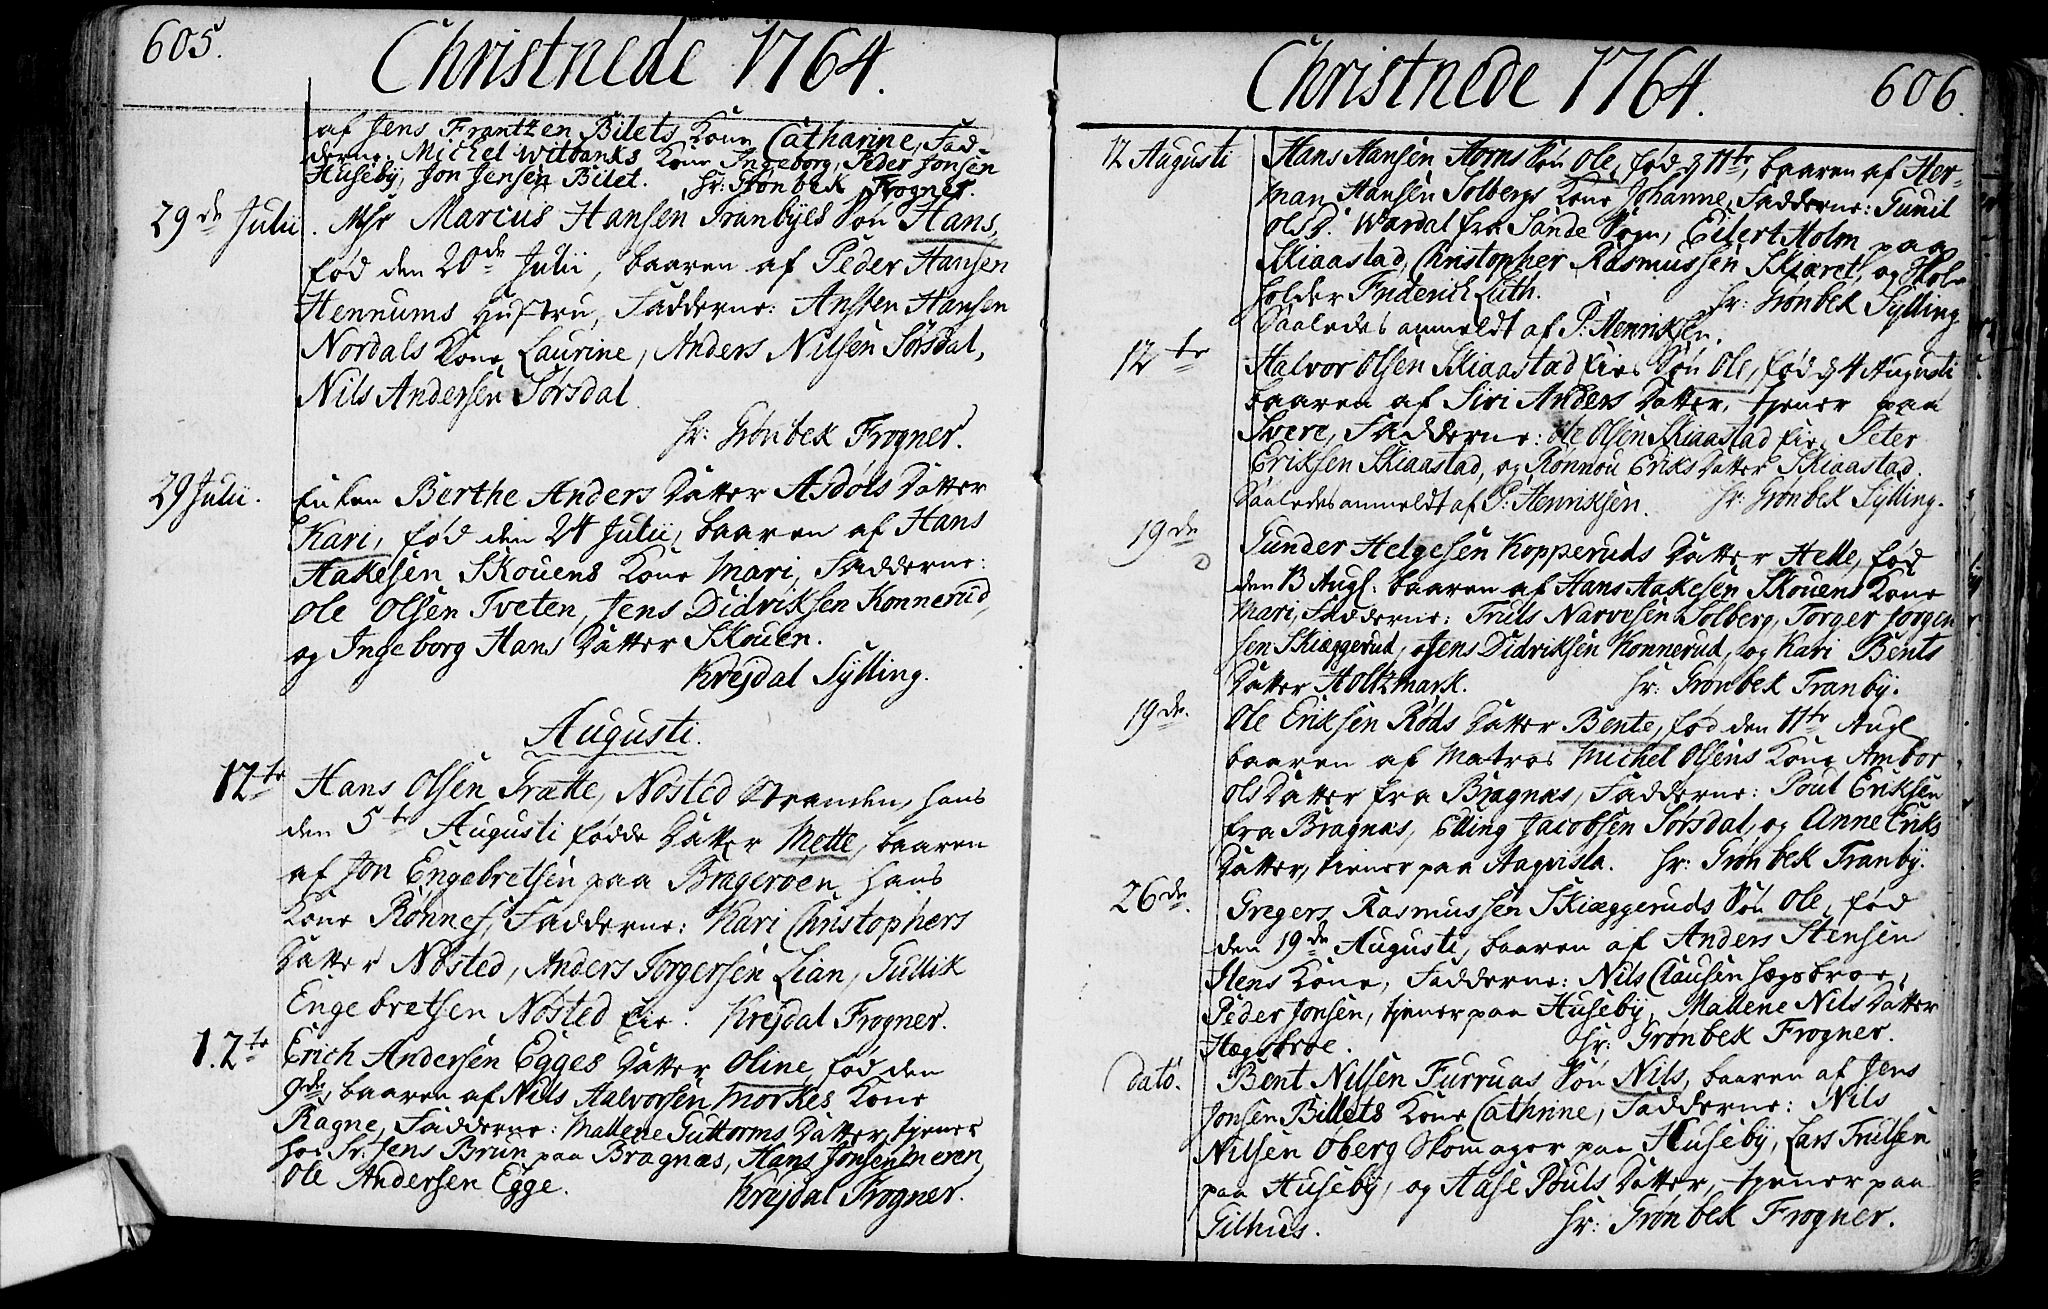 605.
Christnede 1764.
af Jens Frantzen Bilets Kone Catharine, Fad-
derne: Michel Witbanks Kone Ingeborg, Peder Jonsen
Huseby, Jon Jensen Bilet. Hr: Grönbek Frogner.
29de Julii. Msr Marcus Hansen Tranbyes Sön Hans,
fød den 20de Julii, baaren af Peder Hansen
Hennums Hustru, Fadderne: Ansten Hansen
Nordals Kone Laurine, Anders Nilsen Sørsdal,
Nils Andersen Sørsdal.
Hr: Grönbek Frogner.
29 Julii. Enken Berthe Anders Datter Asdöls Datter
Kari, fød den 24 Julii, baaren af Hans
Aakesen Skouens Kone Mari, Fadderne:
Ole Olsen Tveten, Jens Didriksen Konnerud,
og Ingeborg Hans Datter Skouen.
Krejdal Sylling.
Augusti.
12te Hans Olsen Tratte, Nøsted Stranden, hans
den 5te Augusti fødde Datter Mette, baaren
af Jon Engebretsen paa Bragerøen hans
Kone Rønnef, Fadderne: Kari Christophers
Datter Nøsted, Anders Torgersen Lian, Gullik
Engebretsen Nøsted Eie. Krejdal Frogner.
12te Erich Andersen Egges Datter Oline, fød den
9de, baaren af Nils Halvorsen Morkes Kone
Ragne, Fadderne: Mallene Guttorms Datter, tjener
hos Sr. Jens Brun paa Bragnæs, Hans Jonsen Meren,
Ole Andersen Egge. Krejdal Frogner.
Christnede 1764. 606.
12 Augusti Hans Hansen Horns Sön Ole, fød d 11te, baaren af Her-
man Hansen Solbergs Kone Johanne, Fadderne: Gunil
Ols D. Wardal fra Sande Sogn, Eilert Holm paa
Skiaastad, Christopher Rasmussen Skjæret, og Hol-
holder Friderich Luth. Hr: Grönbek Sylling.
Saaledes anmeldt af P: Henriksen.
12te Halvor Olsen Skiaastad Eies Sön Ole, fød d 4 Augusti
baaren af Siri Anders Datter, tjener paa
Svere, Fadderne: Ole Olsen Skiaastad Eie, Peter
Eriksen Skiaastad, og Rønnou Eriks Datter Skiaastad.
Saaledes anmeldt af P: Henriksen. Hr: Grönbek Sylling.
19de Gunder Helgesen Kopperuds Datter Helle, fød
den 13 Augs: baaren af Hans Aakesen Skouens Kone
Mari, Fadderne: Truls Narvesen Solberg, Torger Jorgen
sen Skiæggerud, Jens Didriksen Konnerud, og Kari Bents
Datter Holtzmark. Hr: Grönbek Tranby.
19de. Ole Eriksen Røds Datter Bente, fød den 11te Augs
baaren af Matros Michel Olsens Kone Ambor
Ols Datter fra Bragnæs, Fadderne: Poul Eriksen
fra Bragnæs, Elling Jacobsen Sørsdal, og Anne Eriks
Datter, tiener paa Aaqvisla. Hr: Grönbek Tranby.
26de. Gregers Rasmussen Skiæggeruds Sön Ole, fød
den 19de Augusti, baaren af Anders Stensen
Stens Kone, Fadderne: Nils Clausen Hægsbroe,
Peder Jonsen, tjener paa Huseby, Mallene Nils Datter
Hægsbroe. Hr: Grönbek Frogner.
dato. Bent Nilsen Furruas Sön Nils, baaren af Jens
Jonsen Billets Kone Cathrine, Fadderne: Nils
Nilsen Øberg Skomager paa Huseby, Lars Trulsen
paa Huseby, og Aase Pouls Datter, tjener paa
Gilhus. Hr: Grönbek Frogner.